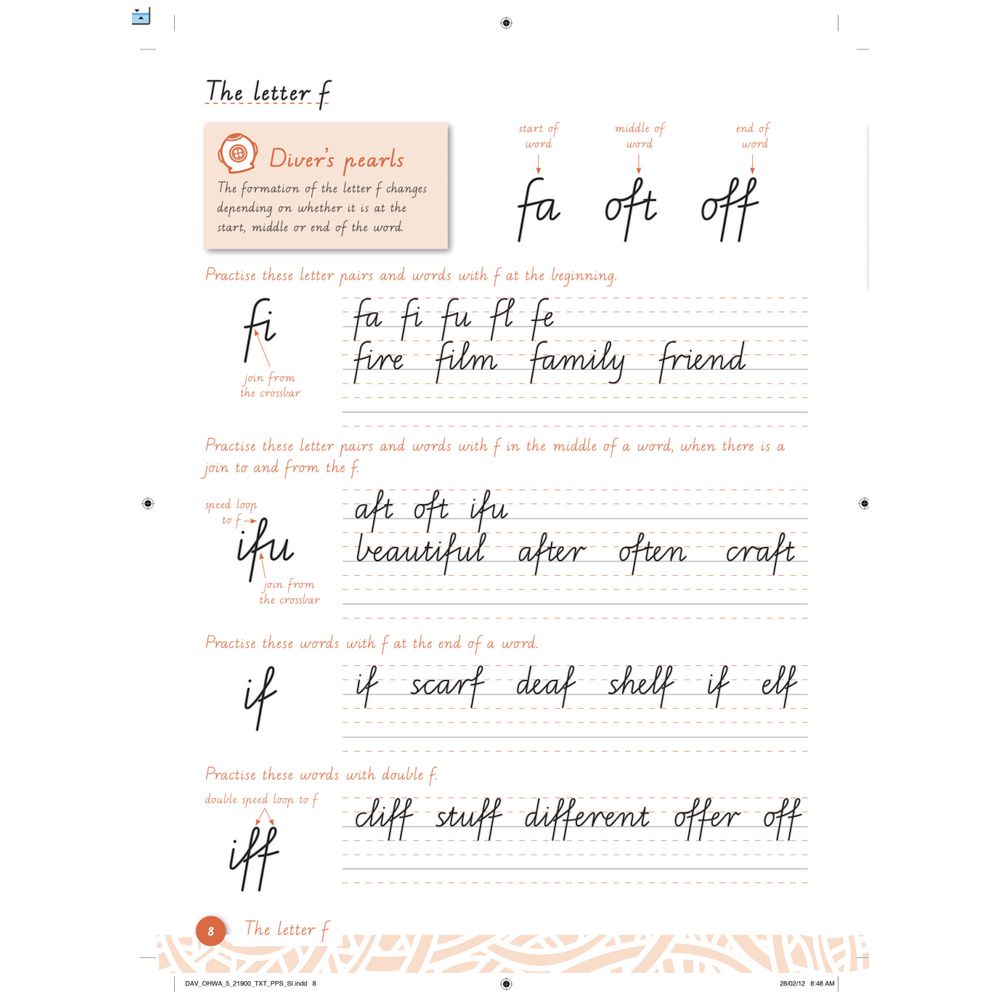 The letter f
Diver's pearls
The formation of the letter f changes
depending on whether it is at the
start, middle or end of the word.
start of
word
middle of
word
end of
word
fa oft off
Practise these letter pairs and words with f at the beginning.
fi
join from
the crossbar
fa fi fu fl fe
fire film family friend
Practise these letter pairs and words with f in the middle of a word, when there is a
join to and from the f.
speed loop
to f
ifu
join from
the crossbar
aft oft ifu
beautiful after often craft
Practise these words with f at the end of a word.
if
if scarf deaf shelf if elf
Practise these words with double f.
double speed loop to f
iff
cliff stuff different offer off
8 The letter f
DAV_OHWA_5_21900_TXT_PPS_SI.indd 8
28/02/12 8:48 AM